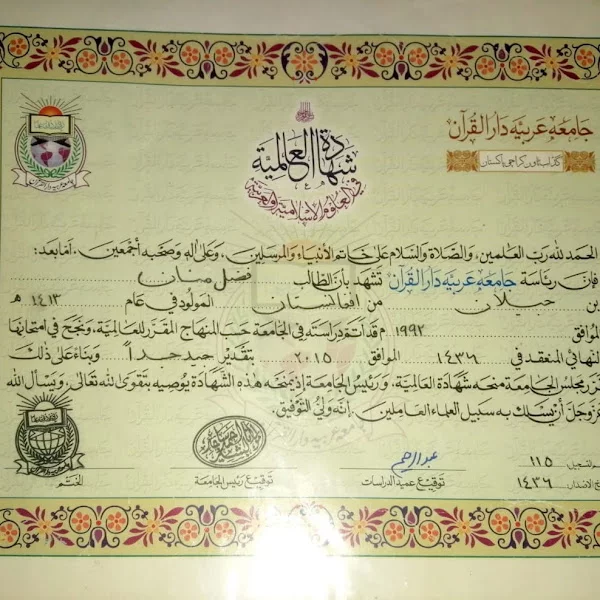 جامعه عربيه دار القرآن
شهادة العالمية
في العلوم الإسلامية والعربية
الحمد لله رب العالمين، والصلاة والسلام على خاتم الأنبياء والمرسلين، وعلى اله وصحبه أجمعين. أما بعد:
فإن رئاسة جامعه عربيه دار القرآن تشهد بأن الطالب فضل منان
بن جيلان من افغانستان المولود في عام ١٤١٣ هـ
الموافق ١٩٩٢ م قد أتم دراسته في الجامعة حسب المنهاج المقرر للعالمية، ونجح في امتحانها
النهائي المنعقد في ١٤٣٦ الموافق ٢٠١٥ بتقدير جيد جداً وبناء على ذلك
قرر مجلس الجامعة منحه شهادة العالمية، ورئيس الجامعة إذ يمنحه هذه الشهادة يوصيه بتقوى الله تعالى، ويسأل الله
عز وجل أن يسلك به سبيل العلماء العاملين. إنه ولي التوفيق.
التسجيل ١١٥
الاصدار: ١٤٣٦
عبدالرحيم
توقيع عميد الدراسات
توقيع رئيس الجامعة
الختم